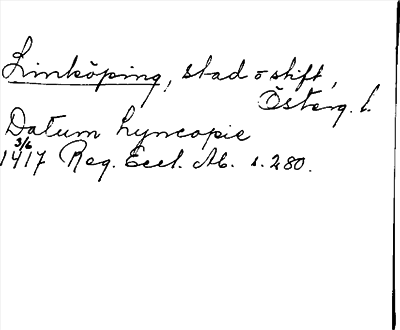 Linköping, stad o stift,
Österg. l.
Datum Lyncopie
3/6
1417 Reg. Eccl. Ab. s. 280.